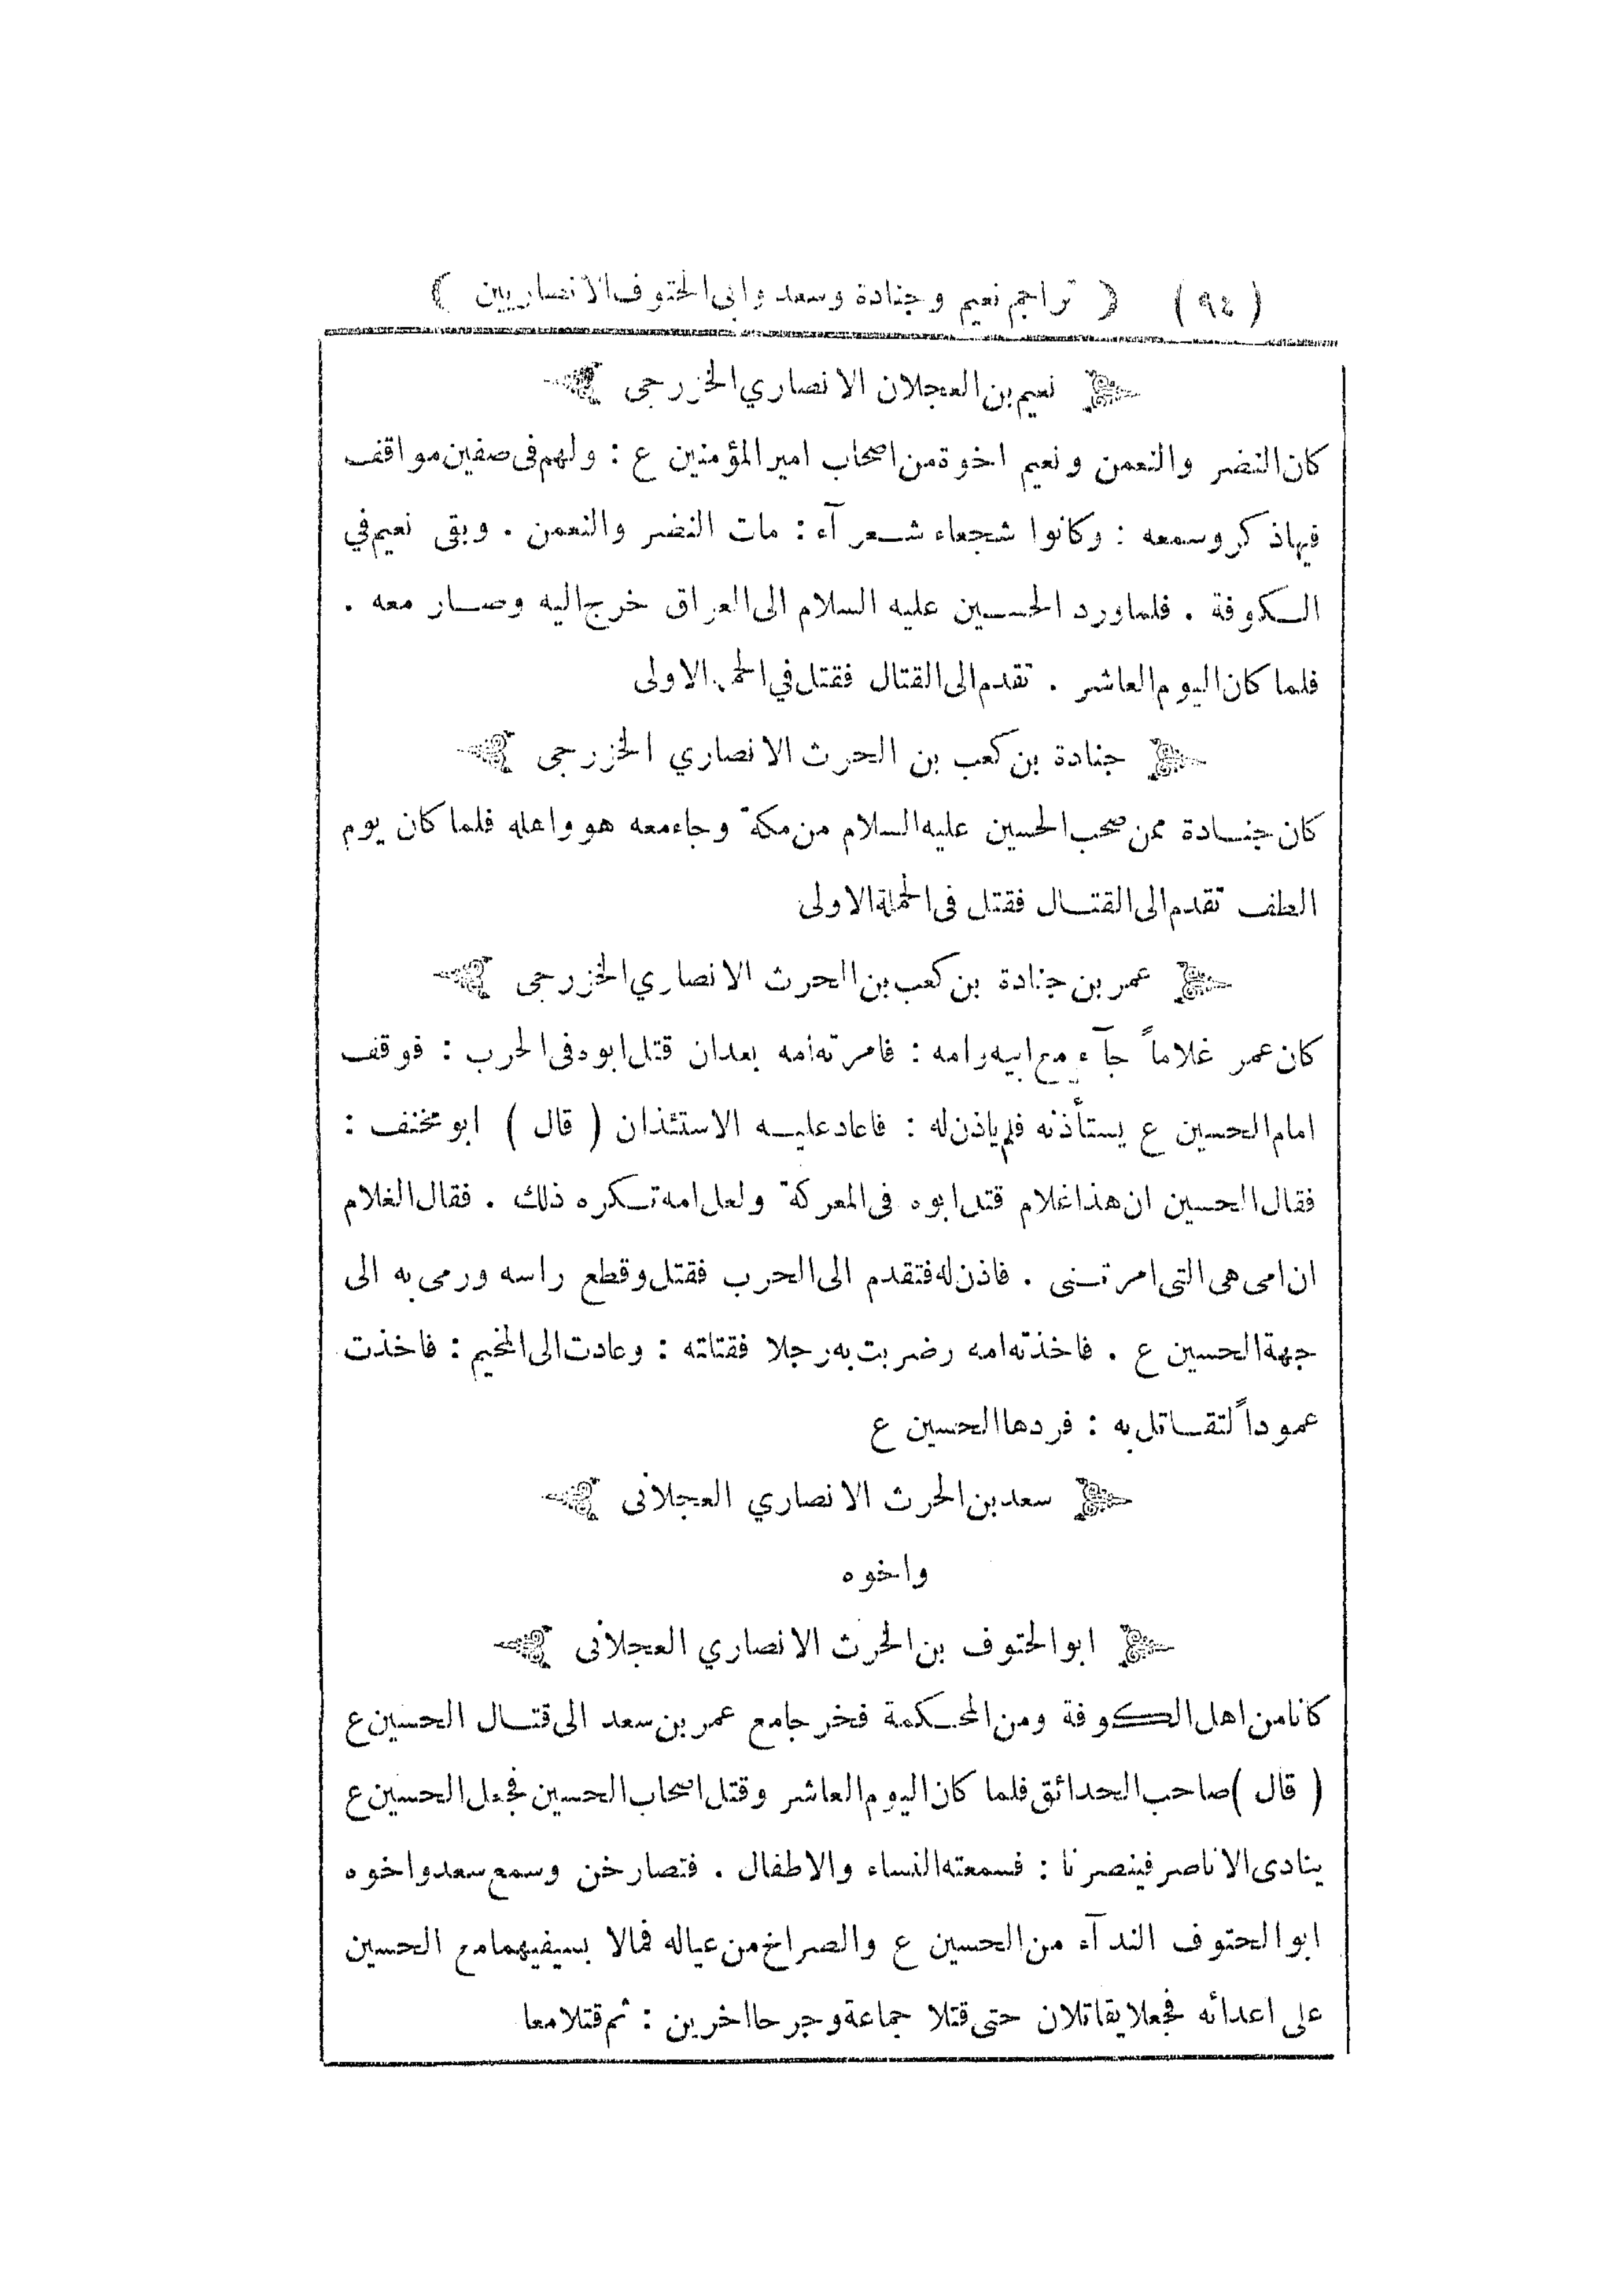 (٩٤) ( تراجم نعيم وجنادة وسعد وابى الحتوف الانصاريين )
نعيم بن العجلان الانصاري الخزرجى
كان النضر والنعمن ونعيم اخوة من اصحاب امير المؤمنين ع : ولهم فى صفين مواقف
فيها ذكر وسمعه : وكانوا شجعاء شعرآء : مات النضر والنعمن . وبقى نعيم في
الكوفة . فلما ورد الحسين عليه السلام الى العراق خرج اليه وصار معه .
فلما كان اليوم العاشر . تقدم الى القتال فقتل في الاولى
جنادة بن كعب بن الحرث الانصاري الخزرجى
كان جنادة ممن صحب الحسين عليه السلام من مكة وجاء معه هو واهله فلما كان يوم
الطف تقدم الى القتال فقتل فى الحملة الاولى
عمر بن جنادة بن كعب بن الحرث الانصاري الخزرجى
كان عمر غلاماً جآء مع ابيه وامه : فامرته أمه بعد ان قتل ابوه فى الحرب : فوقف
امام الحسين ع يستأذنه فلم ياذن له : فاعاد عليه الاستئذان ( قال ) ابو مخنف :
فقال الحسين ان هذا غلام قتل ابوه فى المعركة ولعل امه تكره ذلك . فقال الغلام
ان امى هى التى امرتنى . فاذن له فتقدم الى الحرب فقتل وقطع راسه ورمى به الى
جهة الحسين ع . فاخذته امه وضربت به رجلا فقتلته : وعادت الى المخيم : فاخذت
عموداً لتقاتل به : فردها الحسين ع
سعد بن الحرث الانصاري العجلانى
واخوه
ابو الحتوف بن الحرث الانصاري العجلانى
كانا من اهل الكوفة ومن المحكمة فخرجا مع عمر بن سعد الى قتال الحسين ع
( قال ) صاحب الحدائق فلما كان اليوم العاشر وقتل اصحاب الحسين فجعل الحسين ع
ينادى الا ناصر فينصرنا : فسمعته النساء والاطفال . فتصارخن وسمع سعد واخوه
ابو الحتوف الندآء من الحسين ع والصراخ من عياله فمالا بسيفيهما مع الحسين
على اعدائه فجعلا يقاتلان حتى قتلا جماعة وجرحا اخرين : ثم قتلا معا